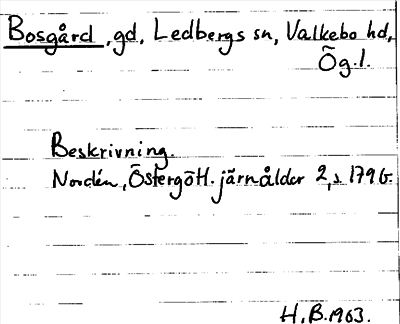 Bosgård, gd, Ledbergs sn, Valkebo hd,
Ög.l.
Beskrivning.
Nordén, Östergötl. järnålder 2, s. 179 f.
H.B. 1963.